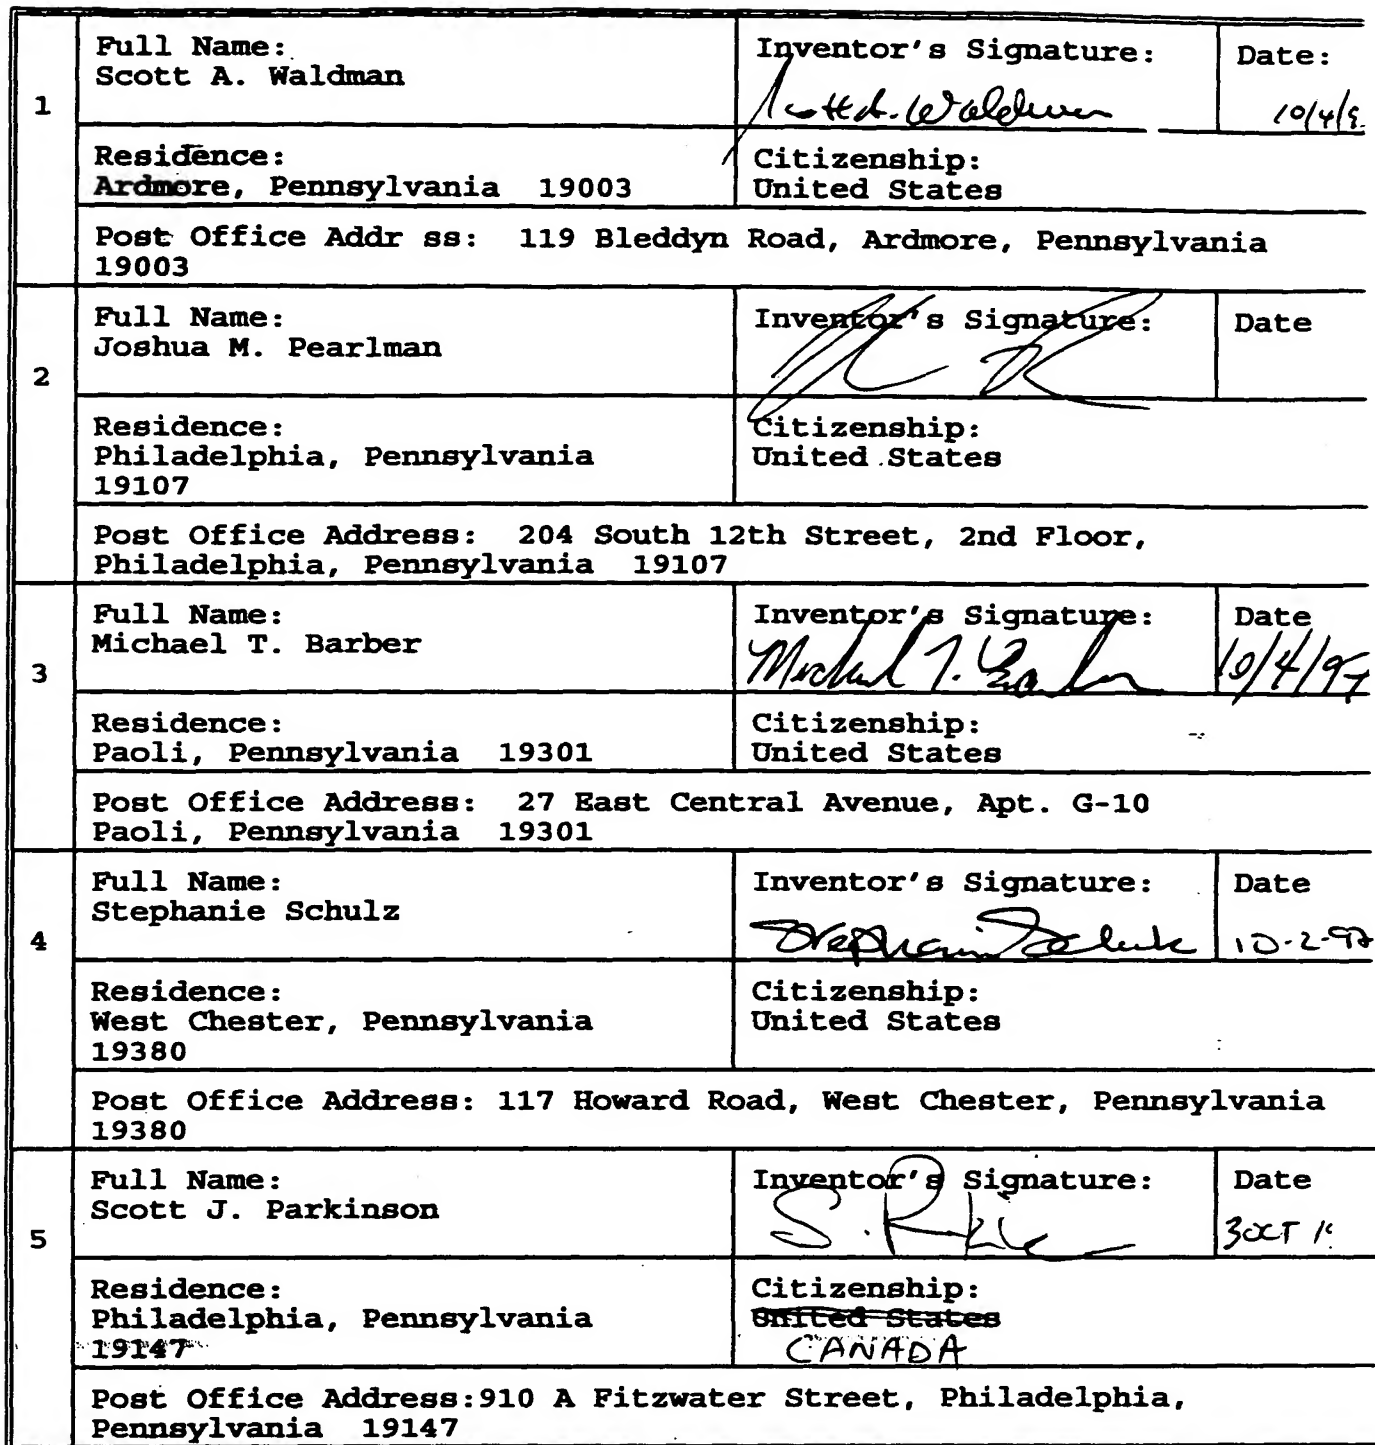 1
Full Name:
Scott A. Waldman
Inventor's Signature:
Scott A. Waldman
Date:
10/4/9
Residence:
Ardmore, Pennsylvania 19003
Citizenship:
United States
Post Office Addr ss: 119 Bleddyn Road, Ardmore, Pennsylvania
19003
2
Full Name:
Joshua M. Pearlman
Inventor's Signature:
Date
Residence:
Philadelphia, Pennsylvania
19107
Citizenship:
United States
Post Office Address: 204 South 12th Street, 2nd Floor,
Philadelphia, Pennsylvania 19107
3
Full Name:
Michael T. Barber
Inventor's Signature:
Michael T. Barber
Date
10/4/97
Residence:
Paoli, Pennsylvania 19301
Citizenship:
United States
Post Office Address: 27 East Central Avenue, Apt. G-10
Paoli, Pennsylvania 19301
4
Full Name:
Stephanie Schulz
Inventor's Signature:
Stephanie Schulz
Date
10-2-97
Residence:
West Chester, Pennsylvania
19380
Citizenship:
United States
Post Office Address: 117 Howard Road, West Chester, Pennsylvania
19380
5
Full Name:
Scott J. Parkinson
Inventor's Signature:
S. Parkinson
Date
3 OCT
Residence:
Philadelphia, Pennsylvania
19147
Citizenship:
United States
CANADA
Post Office Address:910 A Fitzwater Street, Philadelphia,
Pennsylvania 19147